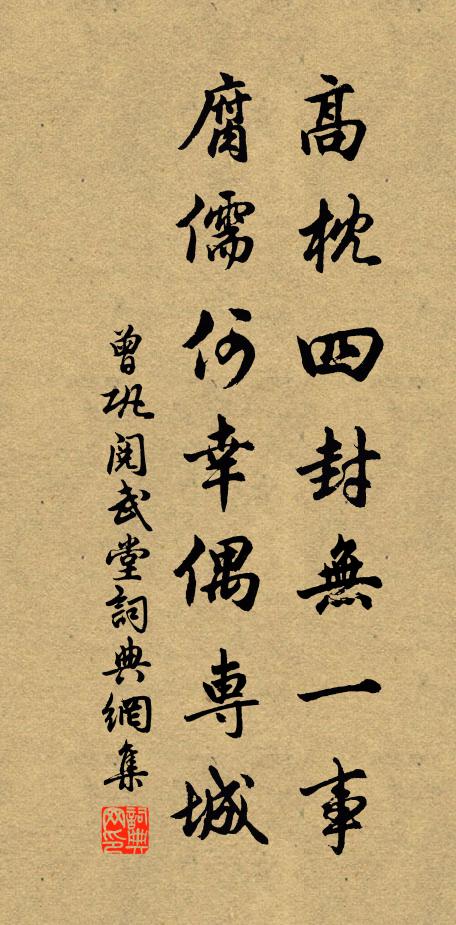 高枕四封無一事
腐儒何幸偶專城
曾巩閱武堂詞典網集
詞典网印